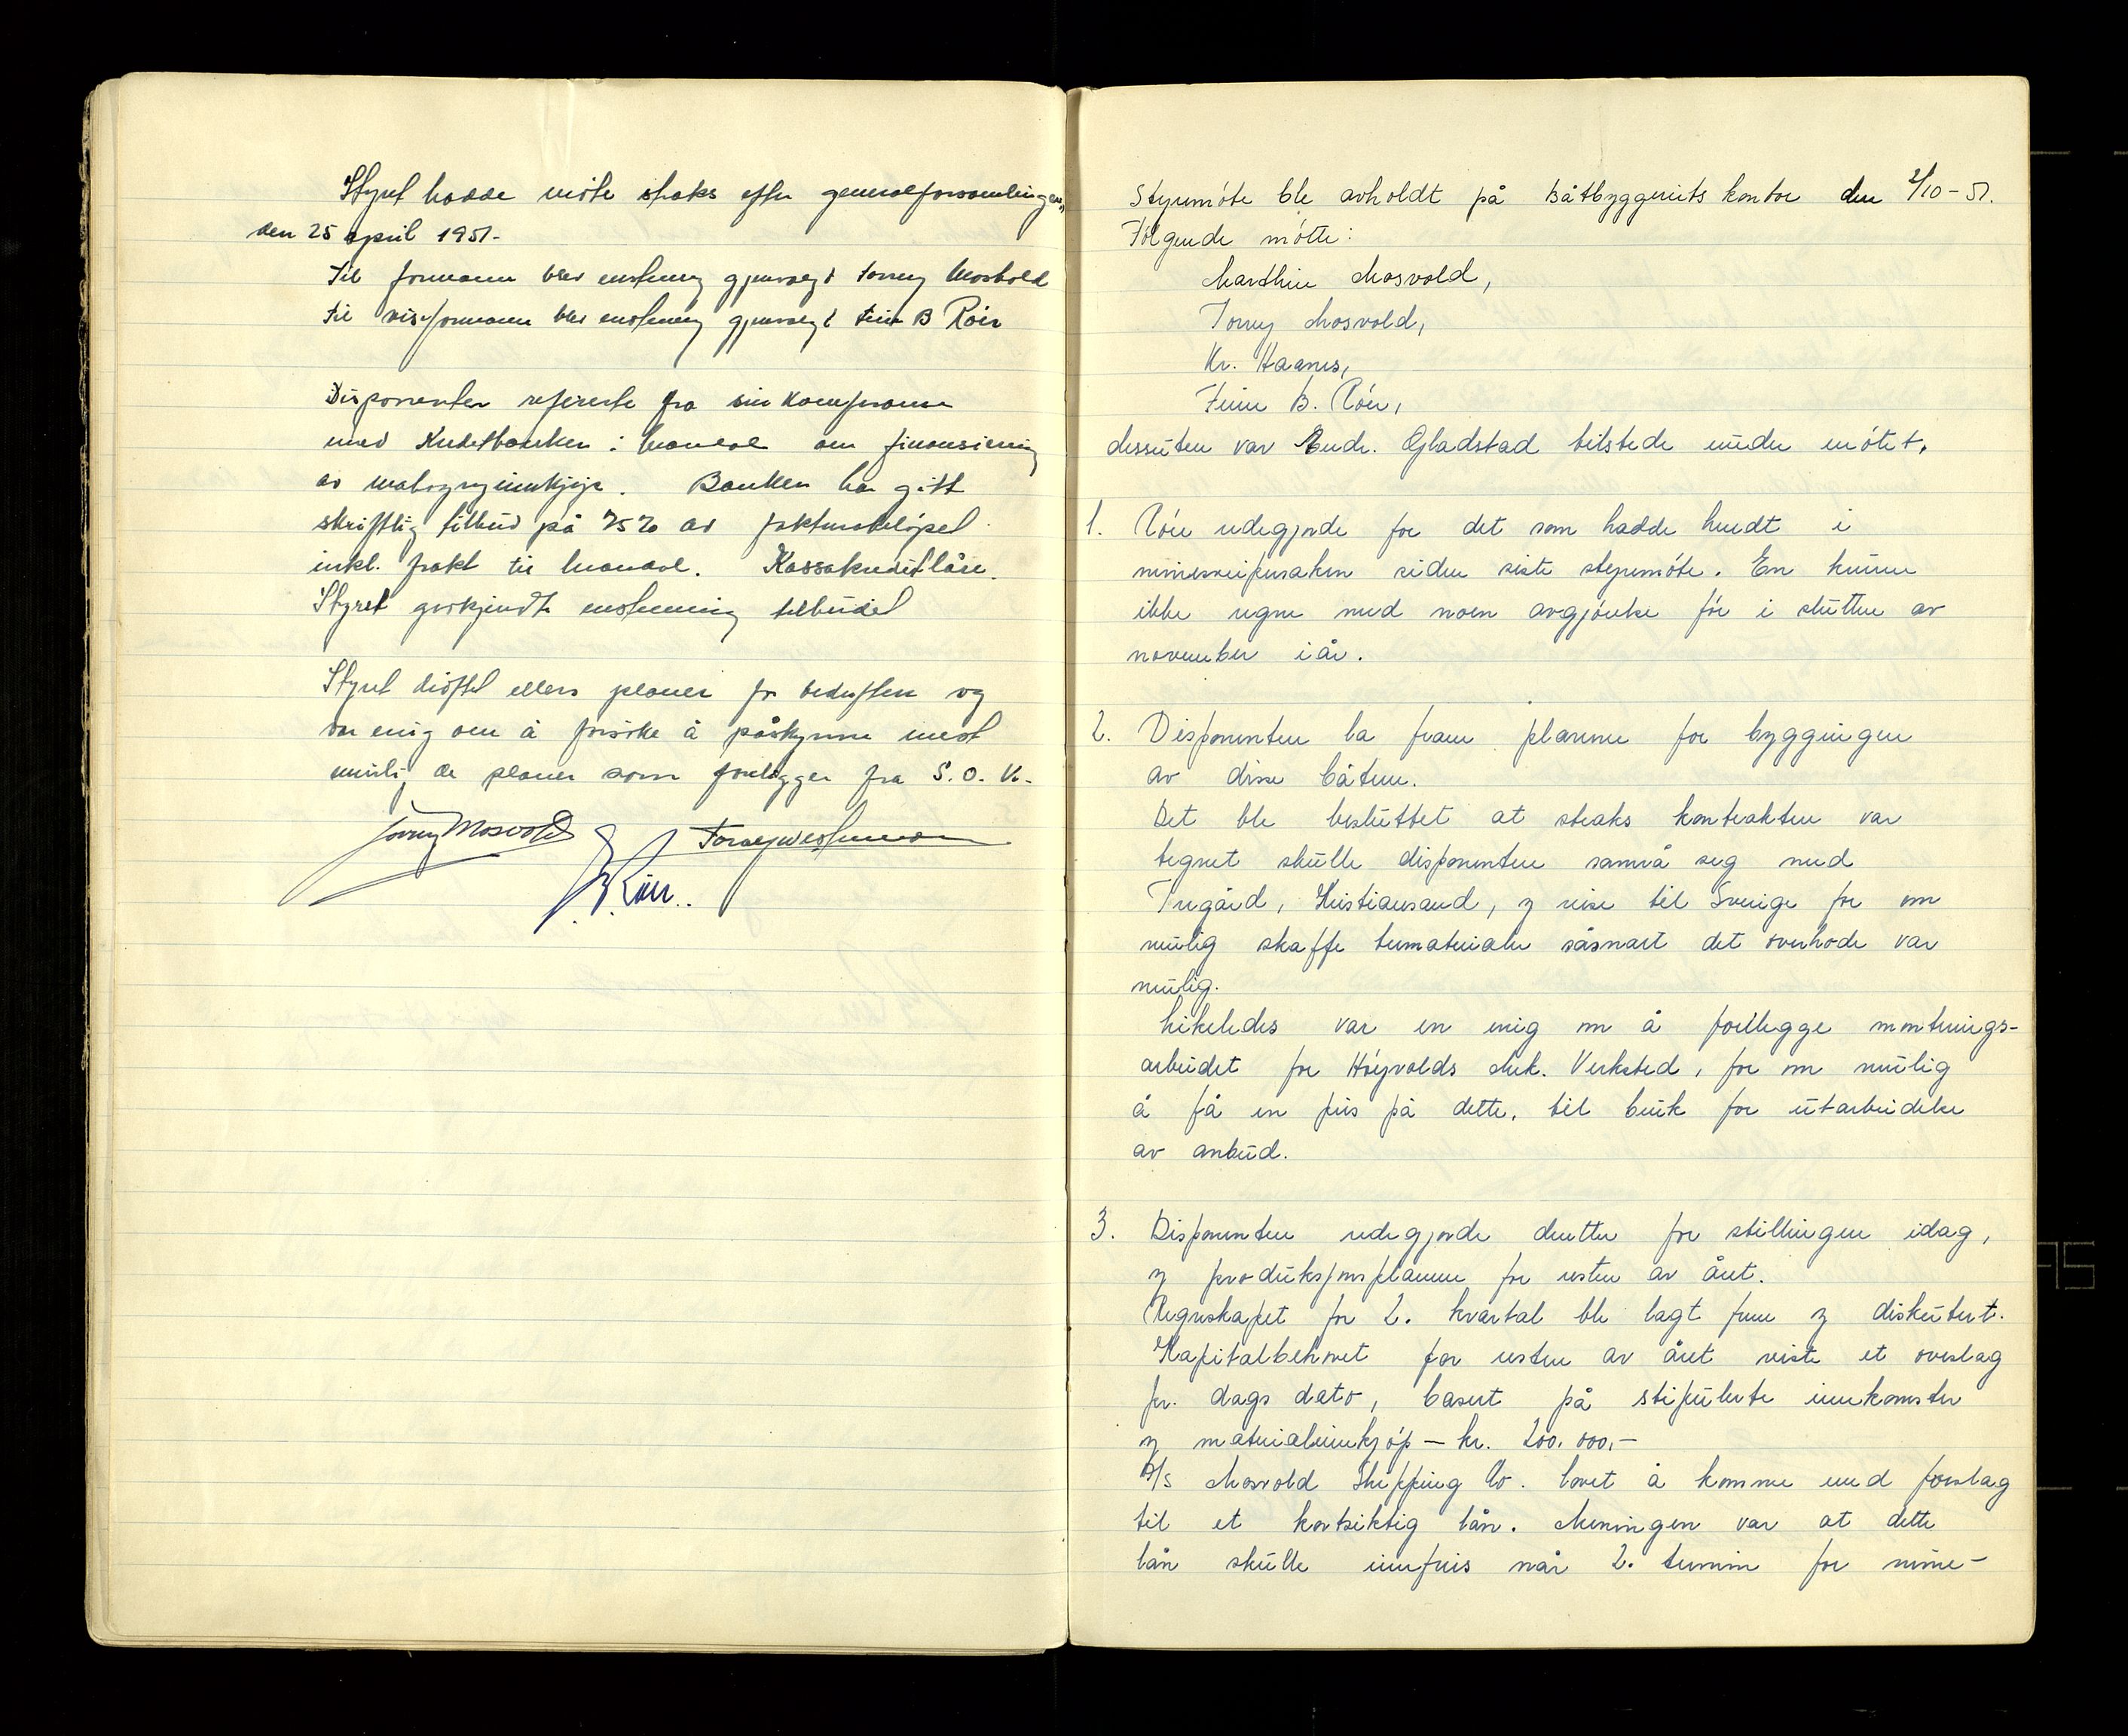 Styret hadde møte straks efter generalforsamlingen,
den 25 april 1951.
Til formann blev enstemmig gjenvalgt Torrey Mosvold
Til viseformann blev enstemmig gjenvalgt Finn B Röer
Disponenten refererte fra sin konferanse
med Kreditbanken i Mandal om finansiering
av mahognyinnkjøp. Banken har gitt
skriftlig tilbud på 75% av fakturabeløpet
inkl. frakt til Mandal. Kassakreditlån.
Styret godkjendte enstemmig tilbudet
Styret drøftet ellers planer for bedriften og
var enig om å forsøke å påskynne mest
mulig de planer som foreligger fra S.O.V.
Torrey Mosvold
F.B. Röer.
Styremöte ble avholdt på Båtbyggeriets kontor den 2/10-51.
Fölgende mötte:
Marthin Mosvold,
Torrey Mosvold,
Kr. Haanes,
Finn B. Röer,
dessuten var Endr. Gladstad tilstede under mötet.
1. Röer redegjorde for det som hadde hendt i
minesveipersaken siden siste styremöte. En kunne
ikke regne med noen avgjörelse för i slutten av
november i år.
2. Disponenten la fram planene for byggingen
av disse båtene.
Det ble besluttet at straks kontrakten var
tegnet skulle disponenten samrå seg med
Tregård, Kristiansand, og reise til Sverige for om
mulig skaffe trematerialer såsnart det overhode var
mulig.
Likeledes var en enig om å forelegge monterings-
arbeidet for Höyvolds Mek. Verksted, for om mulig
å få en pris på dette, til bruk for utarbeidelse
av anbud.
3. Disponenten redegjorde deretter for stillingen idag,
og produksjonsplanene for resten av året.
Regnskapet for 2. kvartal ble lagt frem og diskutert.
Kapitalbehovet for resten av året viste et overslag
pr. dags dato, basert på stipulerte innkomster
og materialinnkjöp – kr. 200.000,-
A/S Mosvold Shipping Co. lovet å komme med forslag
til et kortsiktig lån. Meningen var at dette
lån skulle innfris når 2. termin for mine-